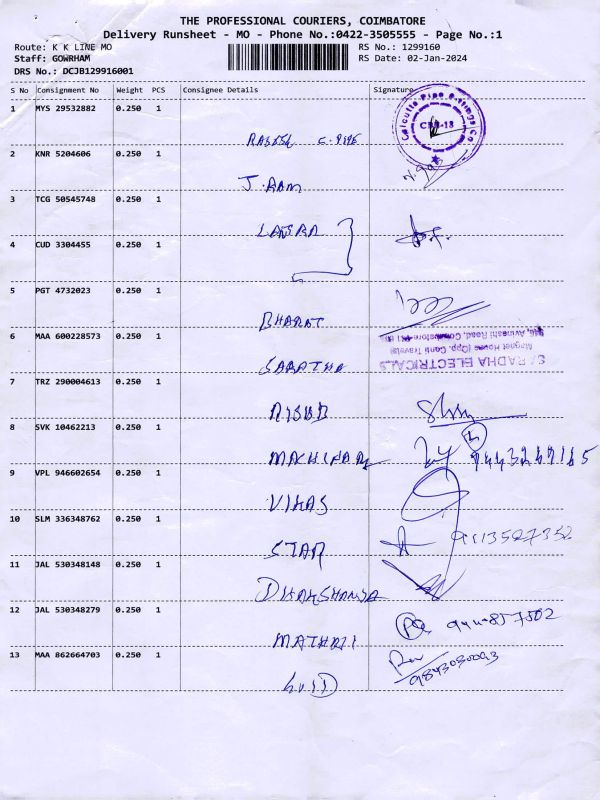 THE PROFESSIONAL COURIERS, COIMBATORE
Delivery Runsheet - MO - Phone No.:0422-3505555 - Page No.:1
Route: K K LINE MO RS No.: 1299160
Staff: GOWRHAM RS Date: 02-Jan-2024
DRS No.: DCJB129916001
S No Consignment No Weight PCS Consignee Details Signature
1 MYS 29532882 0.250 1
Calcutta Pipe Fittings Co.
CBE-18
2 KNR 5204606 0.250 1
J. RAM
3 TCG 50545748 0.250 1
4 CUD 3304455 0.250 1
5 PGT 4732023 0.250 1
BHARAT
6 MAA 600228573 0.250 1
SARADHA ELECTRICALS
Magnet House (Opp. Ganti Travels)
Avinashi Road, Coimbatore
7 TRZ 290004613 0.250 1
8 SVK 10462213 0.250 1
9443269165
9 VPL 946602654 0.250 1
VIKAS
10 SLM 336348762 0.250 1
STAR
11 JAL 530348148 0.250 1
12 JAL 530348279 0.250 1
13 MAA 862664703 0.250 1
9843080093